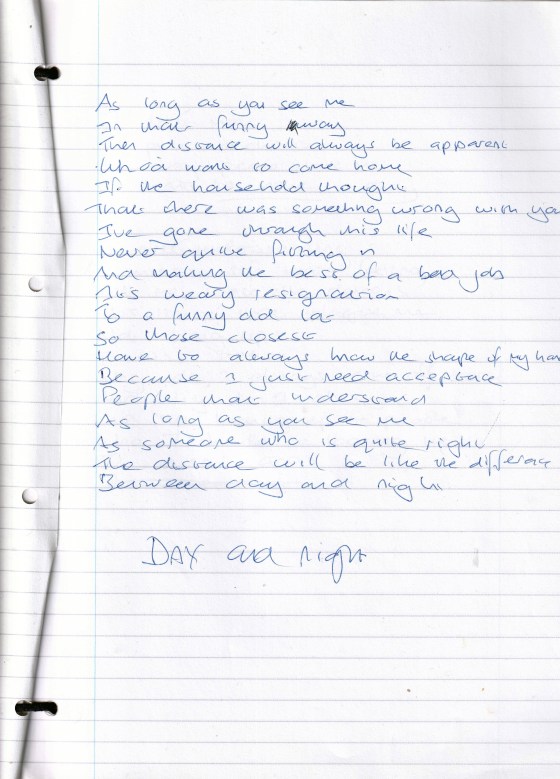 As long as you see me
In that funny way
Then distance will always be apparent
Who'd want to come home
If the household thought
That there was something wrong with you
I've gone through this life
Never quite fitting in
And making the best of a bad job
It's weary resignation
To a funny old lot
So those closest
Have to always know the shape of my
Because I just need acceptance
People that understand
As long as you see me
As someone who is quite right
The distance will be like the difference
Between day and night
DAY and night